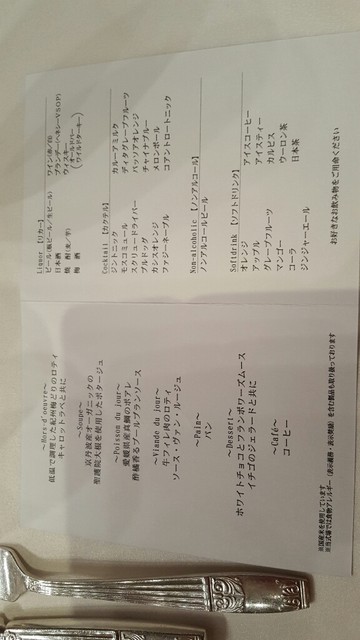 ~Hors-d'oeuvre~
低温で調理した紀州梅どりのロティ
キャロットラペと共に
~Soupe~
京丹波産オーガニックの
聖護院大根を使用したポタージュ
~Poisson du jour~
愛媛県産真鯛のポアレ
酢橘香るブールブランソース
~Viande du jour~
牛フィレ肉のロティ
ソース・ヴァン・ルージュ
~Pain~
パン
~Dessert~
ホワイトチョコとフランボワーズムース
イチゴのジェラードと共に
~Café~
コーヒー
※国産米を使用しています
※当式場では食物アレルギー(表示義務・表示奨励)を含む製品も取り扱っております
Liquor 【リカー】
ビール(瓶ビール/生ビール)
日本酒
焼 酎(麦/芋)
梅 酒
ワイン(赤/白)
ブランデー(ヘネシーVSOP)
ウィスキー
(オールドパー
ワイルドターキー)
Cocktail 【カクテル】
ジントニック
モスコミュール
スクリュードライバー
ブルドッグ
カシスオレンジ
ファジーネーブル
カルーアミルク
ディタグレープフルーツ
パッソアオレンジ
チャイナブルー
メロンボール
コアントロートニック
Non-alcoholic 【ノンアルコール】
ノンアルコールビール
Softdrink 【ソフトドリンク】
オレンジ
アップル
グレープフルーツ
マンゴー
コーラ
ジンジャーエール
アイスコーヒー
アイスティー
カルピス
ウーロン茶
日本茶
お好きなお飲み物をご用命ください